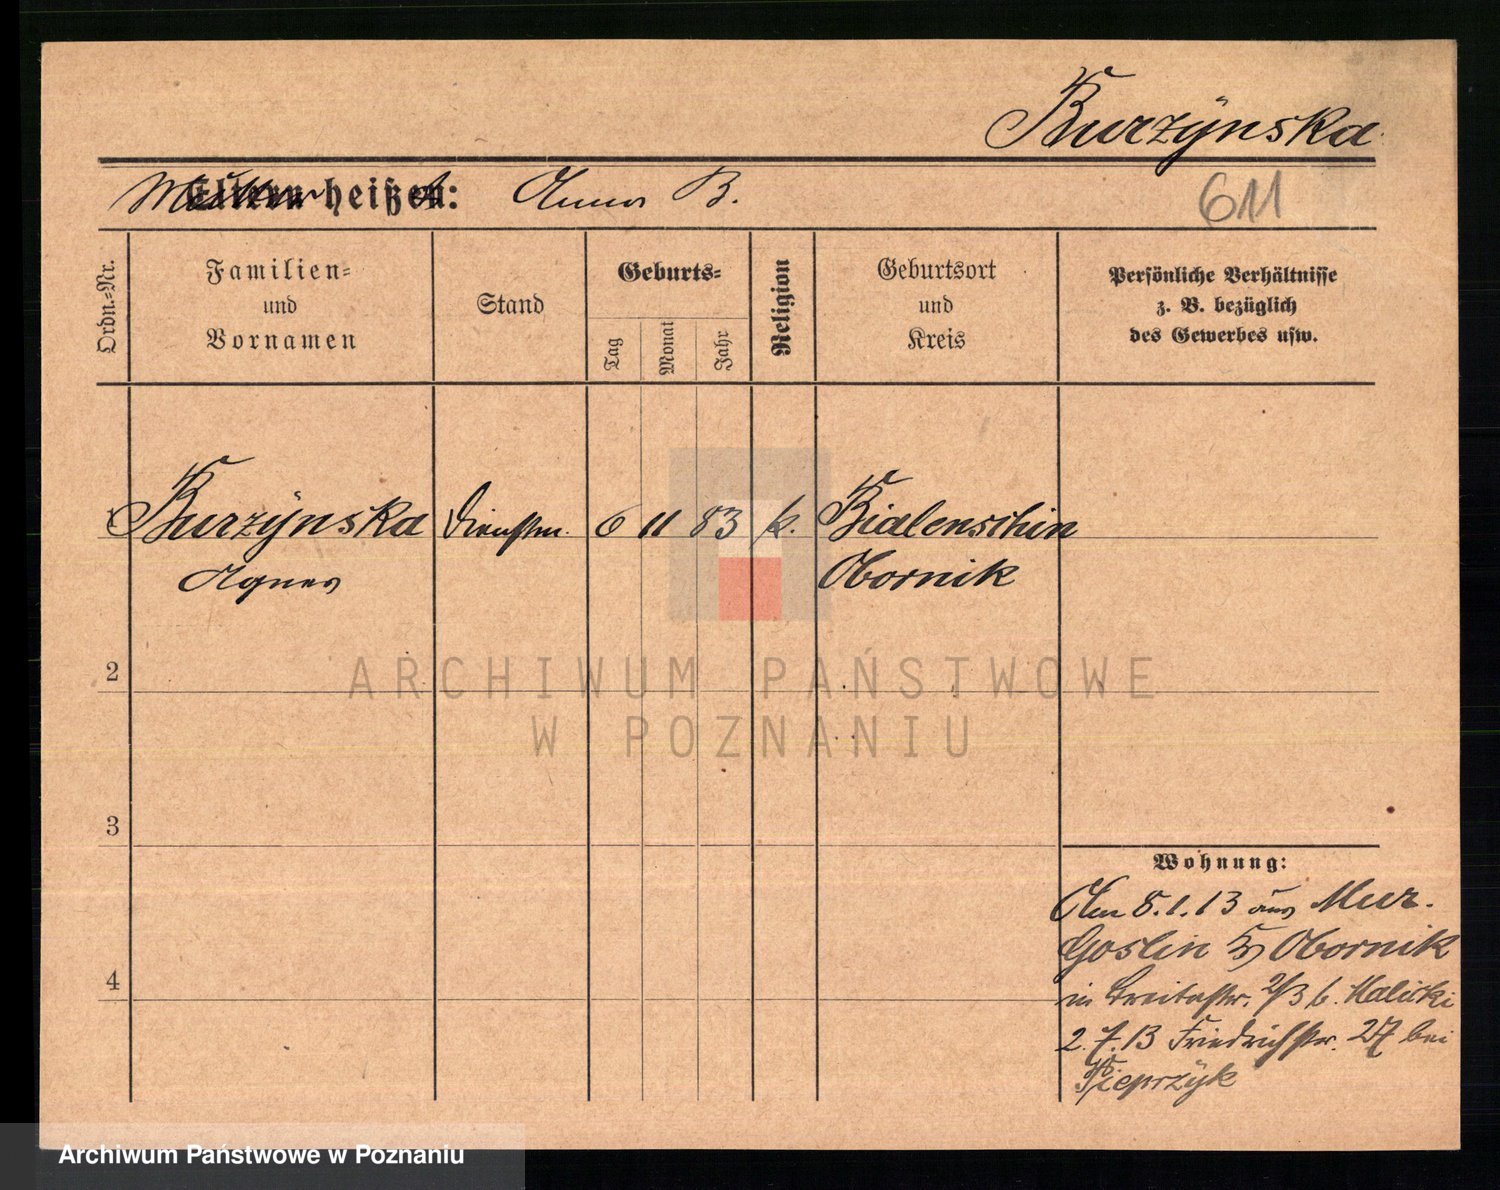 Burzÿnska
Mutter heißt: Anna B.
611
Ordn.-Nr.
Familien-
und
Vornamen
Stand
Geburts-
Tag
Monat
Jahr
Religion
Geburtsort
und
Kreis
Persönliche Verhältnisse
z. B. bezüglich
des Gewerbes usw.
1 Burzÿnska Dienstm. 6 11 83 k. Bialenschin
Agnes Obornik
2
3
4
Wohnung:
Am 8.1.13 aus Mur.
Goslin Kr Obornik
in Breitestr. 2/3 b. Malicki
2.7.13 Friedrichstr. 27 bei
Pieprzÿk
ARCHIWUM PAŃSTWOWE
W POZNANIU
Archiwum Państwowe w Poznaniu